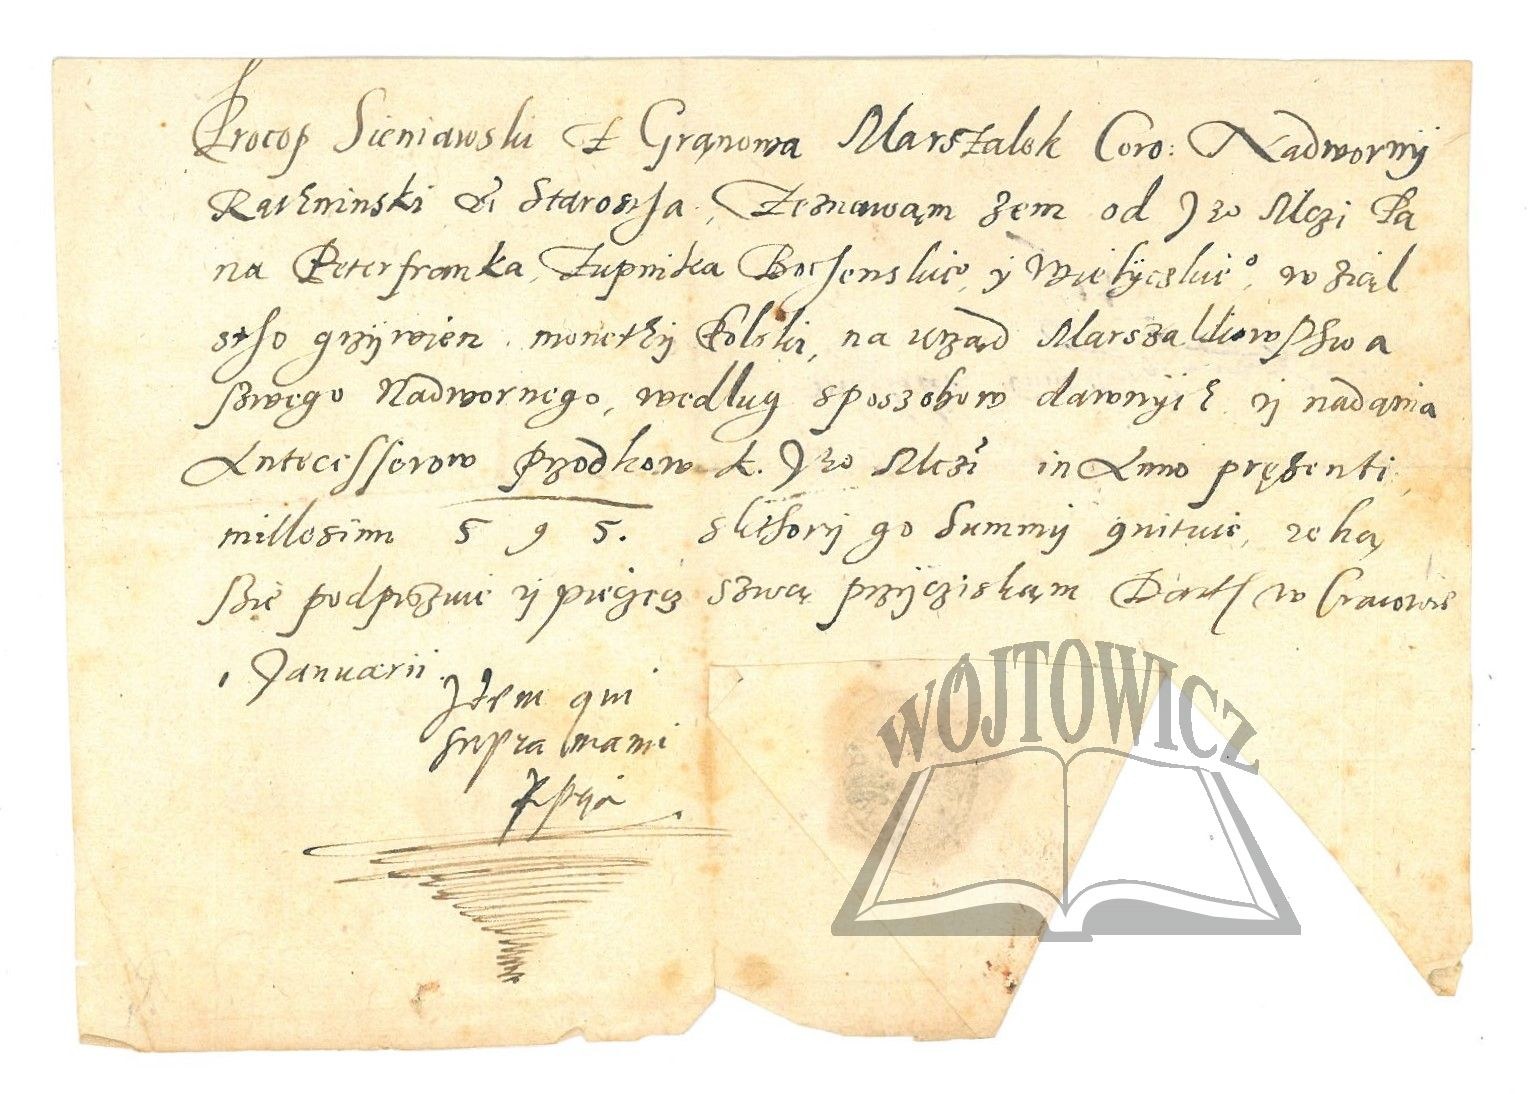 Procop Sieniawski Z Grąnowa Marszalek Coro: Nadworny
Ratheninski & Starostha, Zeznawąm zem od Jego Mczi Pa
na Peterfranka, Zupnika Bochenskieo, y Wieliczkieo, wziąl
stho grzywien monethy Polski, na urząd Marszalkiowsthwa
szwego Nadwornego, wedlug sposzobow dawnyich y nadąnia
Antecessorow Przodkow k. Jego Mczi in Anno pręsenti
millesimi 595. skthory go Summy quituie, reką
szie podpiszuie y pieczęcz szwą przycziskąm Dath w Cracowie
1 Januarii.
Idem qui
supra manu
ppria
WÓJTOWICZ